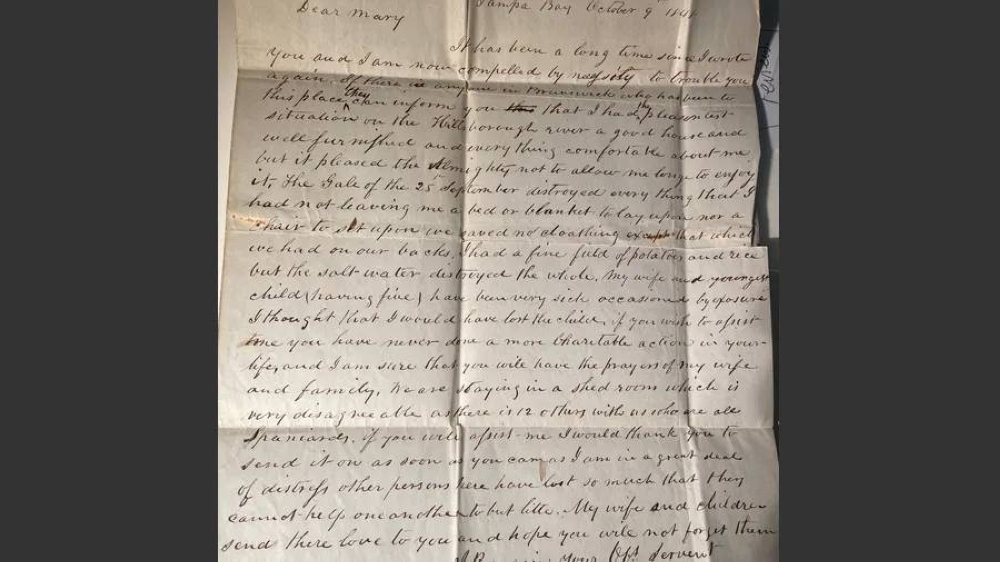 Tampa Bay October 9th 1848
Dear Mary
It has been a long time since I wrote
you and I am now compelled by nessity to trouble you
again. If there is anyone in Brunswick who has been to
this place they can inform you that I had the pleasentest
situation on the Hillsborough river a good house and
well furnished and everything comfortable about me
but it pleased the Almighty not to allow me longe to enjoy
it, the Gale of the 25 September distroyed every thing that I
had not leaving me a bed or blanket to lay upon nor a
chair to set upon we saved no cloathing except that which
we had on our backs, I had a fine field of potatoes and rice
but the salt water destroyed the whole. My wife and youngest
child (having five) have been very sick occasiond by exposure
I thought that I would have lost the child, if you wish to assist
me you have never done a more Charitable action in your
life, and I am sure that you wile have the prayers of my wife
and family, We are staying in a shed room which is
very disagreeable as there is 12 others with us who are all
Spaniards, if you wile assist me I would thank you to
send it on as soon as you can as I am in a great deal
of distress other persons here have lost so much that they
cannot help one another to but little. My wife and children
send there love to you and hope you wile not forget them
your Obt Servent